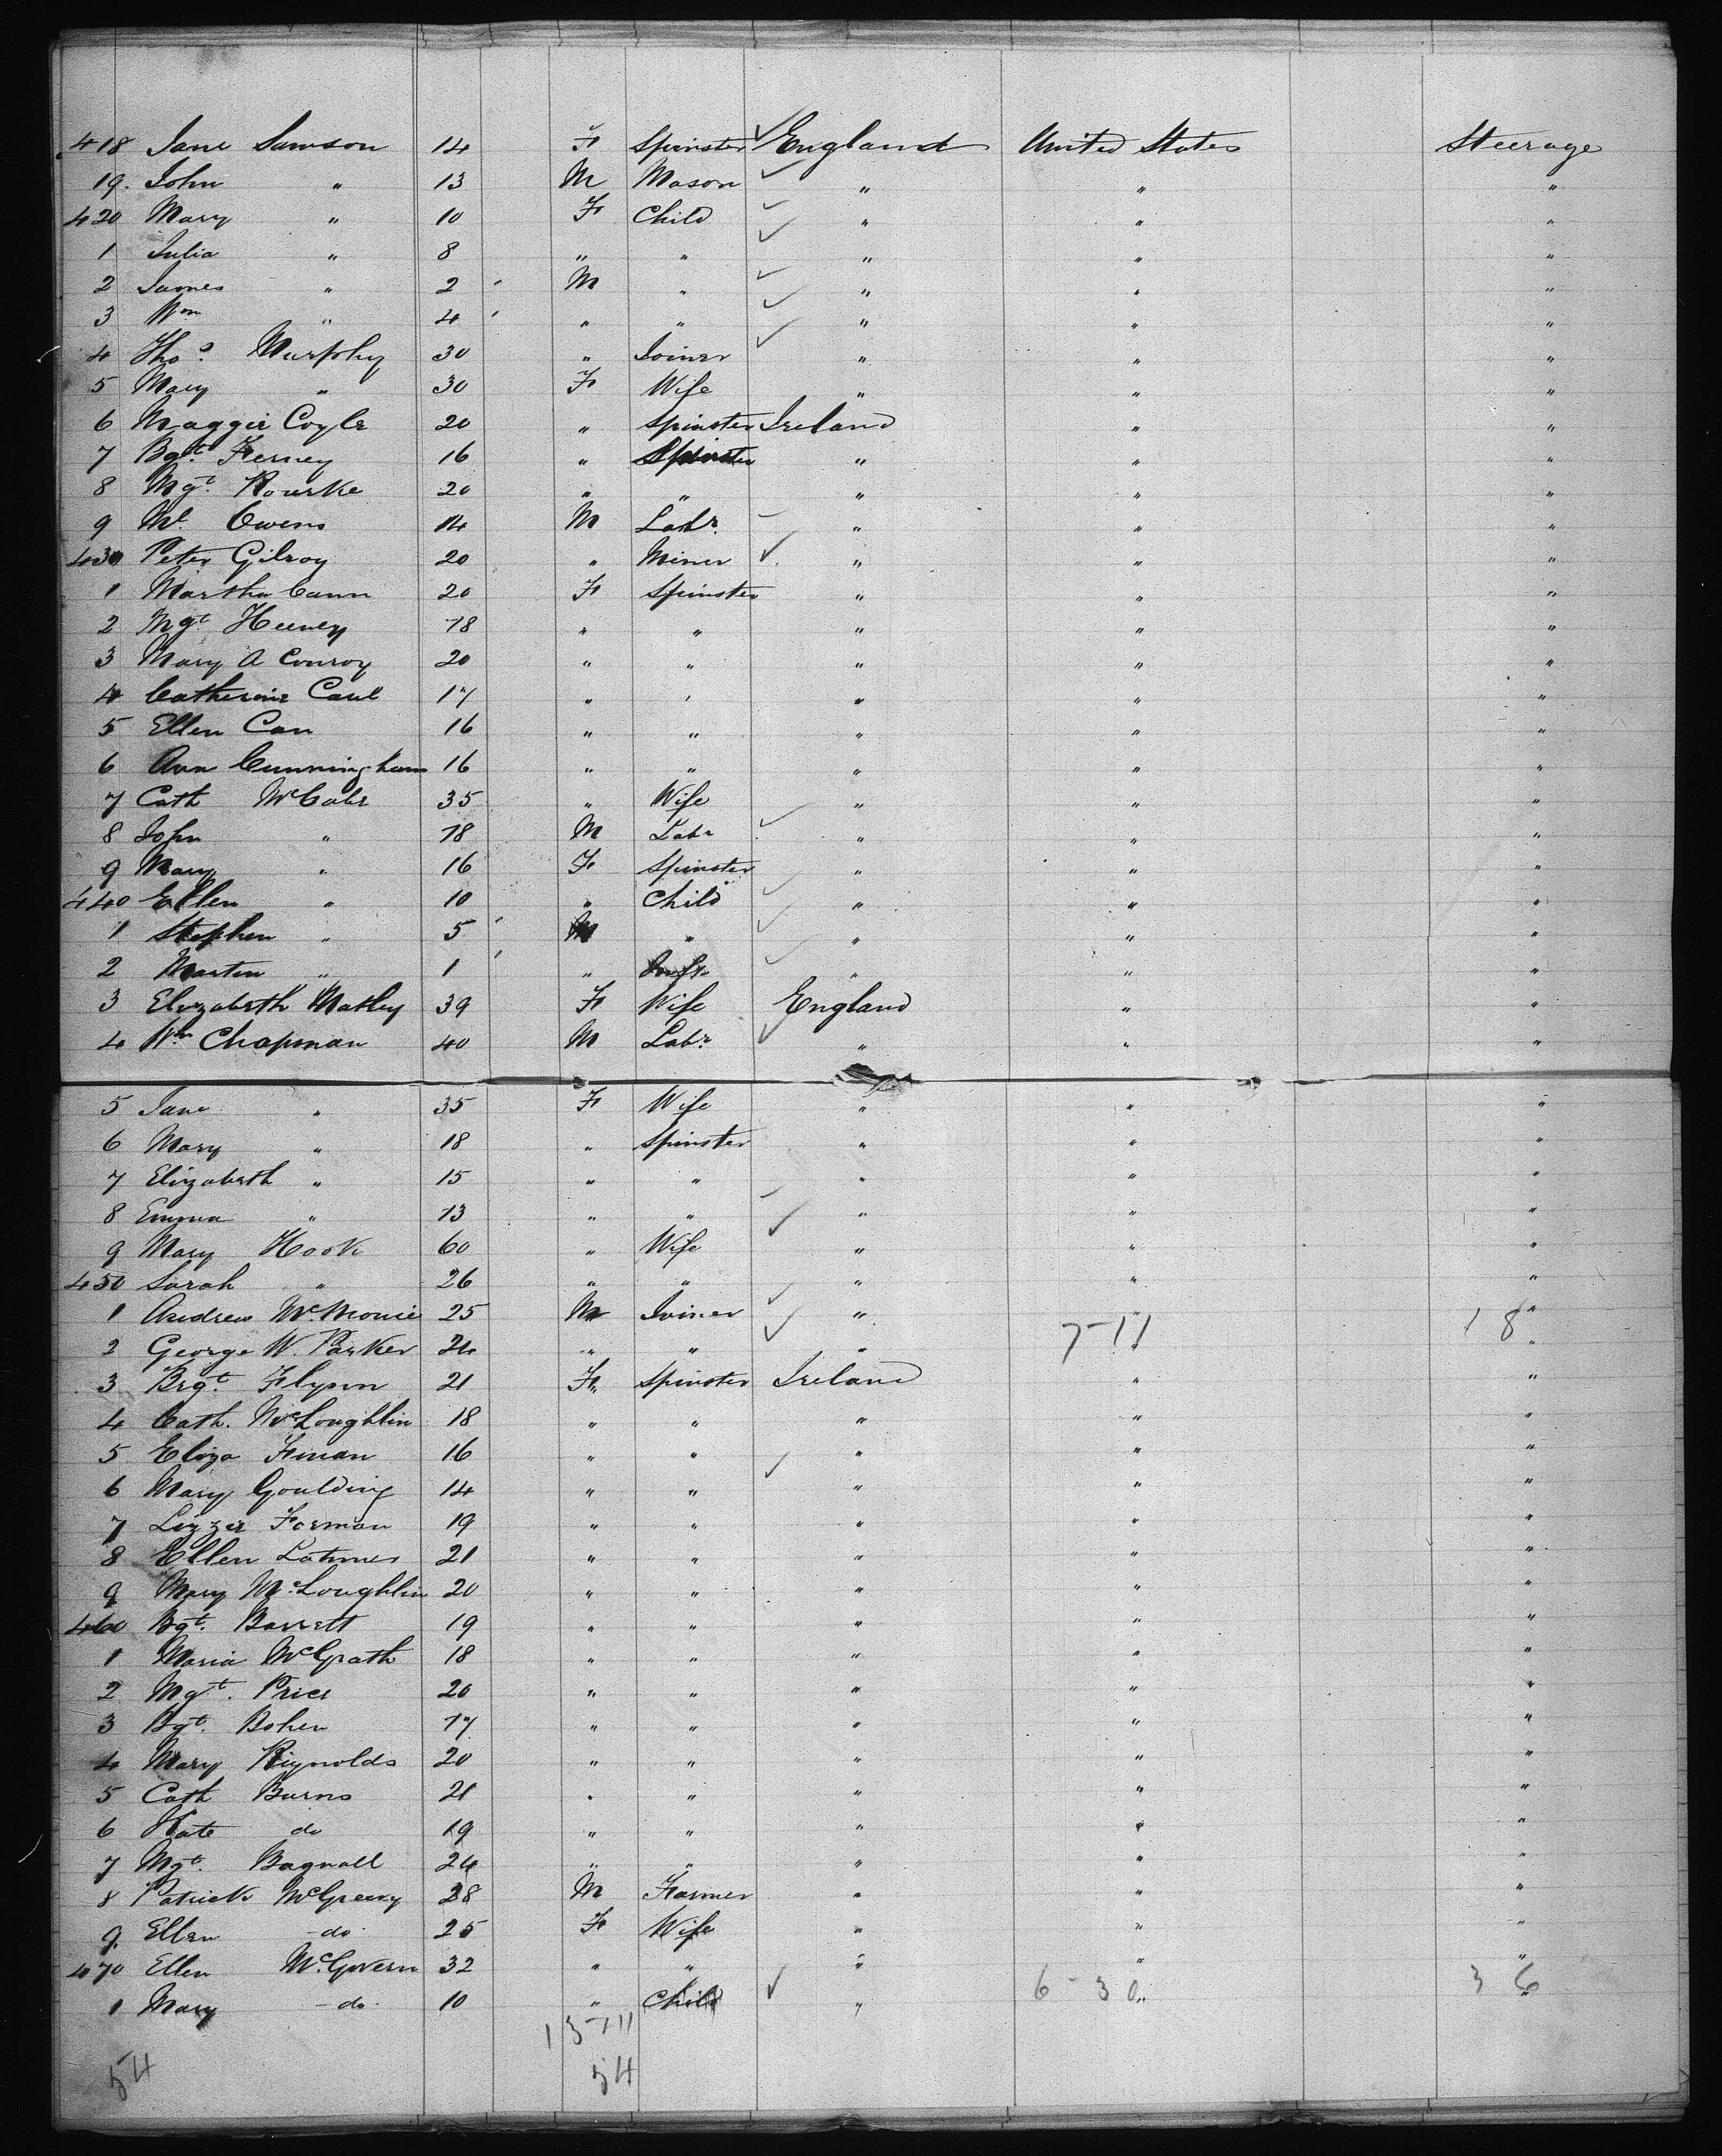 418 Jane Samson 14 F Spinster England United States Steerage
19. John " 13 M Mason " " "
420 Mary " 10 F Child " " "
1 Julia " 8 " " " " "
2 James " 2 M " " " "
3 Wm " 4 " " " " "
4 Thos. Murphy 30 " Joiner " " "
5 Mary " 30 F Wife " " "
6 Maggie Coyle 20 " Spinster Ireland " "
7 Bgt. Ferney 16 " Spinster " " "
8 Mgt. Rourke 20 " " " " "
9 Ml. Owens 14 M Labr. " " "
430 Peter Gilroy 20 " Miner " " "
1 Martha Cann 20 F Spinster " " "
2 Mgt. Heeney 18 " " " " "
3 Mary A Conroy 20 " " " " "
4 Catherine Caul 17 " " " " "
5 Ellen Carr 16 " " " " "
6 Ann Cunningham 16 " " " " "
7 Cath McCabe 35 " Wife " " "
8 John " 18 M Labr " " "
9 Mary " 16 F Spinster " " "
440 Ellen " 10 " Child " " "
1 Stephen " 5 M " " " "
2 Martin " 1 " Inft " " "
3 Elizabeth Matley 39 F Wife England " "
4 Wm Chapman 40 M Labr. " " "
5 Jane " 35 F Wife " " "
6 Mary " 18 " Spinster " " "
7 Elizabeth " 15 " " " " "
8 Emma " 13 " " " " "
9 Mary Hook 60 " Wife " " "
450 Sarah " 26 " " " " "
1 Andrew McMonie 25 M Joiner " " "
2 George W. Parker 24 " " " 7-11 " 18 "
3 Brgt. Flynn 21 F Spinster Ireland " "
4 Cath. McLoughlin 18 " " " " "
5 Eliza Finan 16 " " " " "
6 Mary Goulding 14 " " " " "
7 Lizzie Forman 19 " " " " "
8 Ellen Latimer 21 " " " " "
9 Mary McLoughlin 20 " " " " "
460 Bgt. Barrett 19 " " " " "
1 Maria McGrath 18 " " " " "
2 Mgt. Price 20 " " " " "
3 Bgt. Bohen 17 " " " " "
4 Mary Reynolds 20 " " " " "
5 Cath Burns 21 " " " " "
6 Kate do 19 " " " " "
7 Mgt. Bagnall 24 " " " " "
8 Patrick McGreevy 28 M Farmer " " "
9. Ellen do 25 F Wife " " "
470 Ellen McGovern 32 " " " " "
1 Mary do 10 " Child " 6-30 " 36 "
54 54